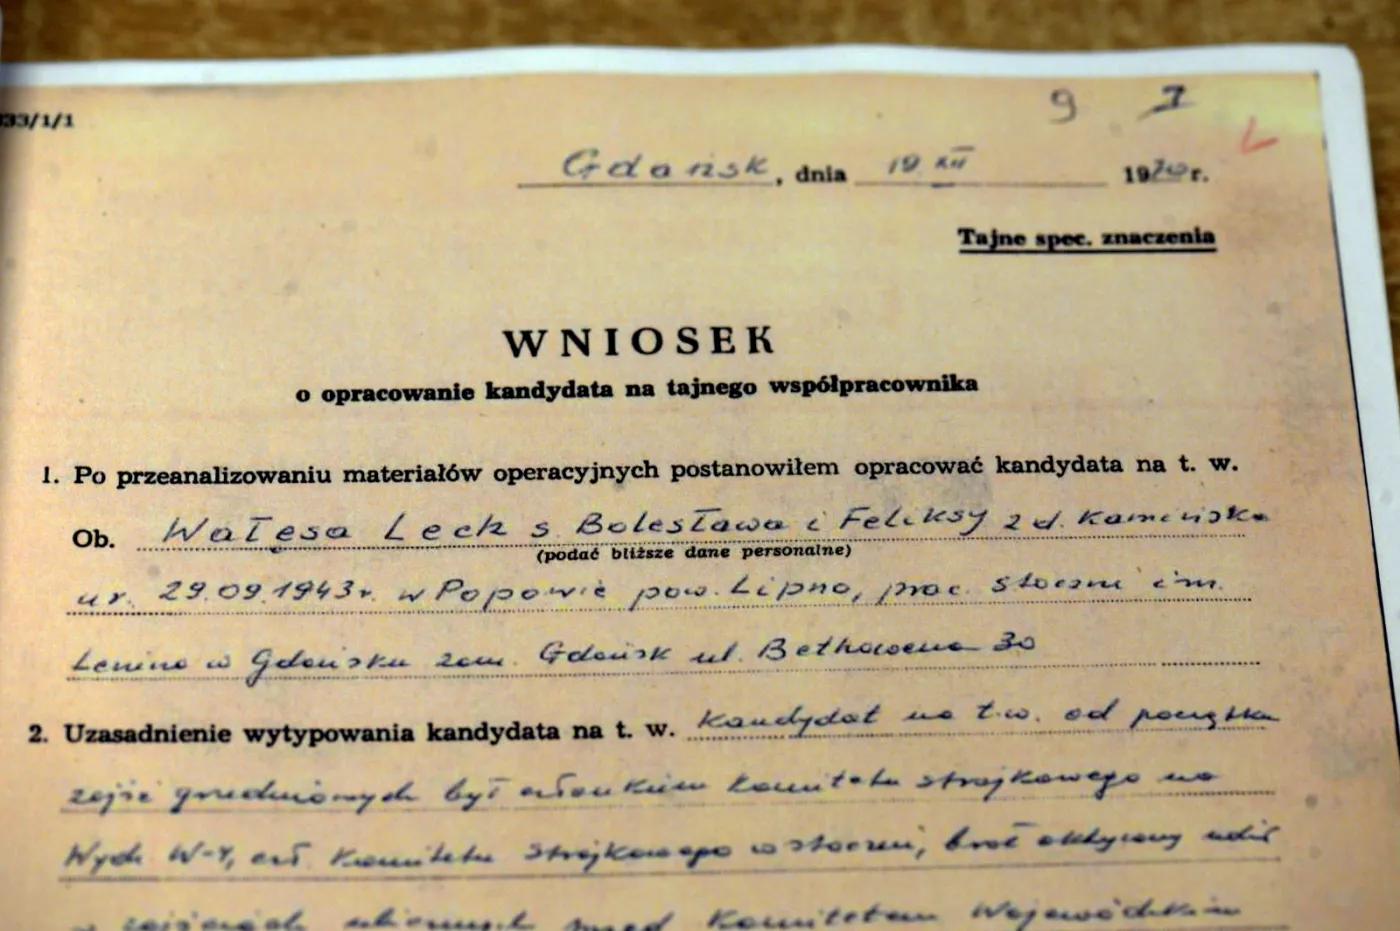 333/1/1
9 7
Gdańsk, dnia 19 XII 1970 r.
Tajne spec. znaczenia
WNIOSEK
o opracowanie kandydata na tajnego współpracownika
1. Po przeanalizowaniu materiałów operacyjnych postanowiłem opracować kandydata na t. w.
Ob. Wałęsa Lech s. Bolesława i Feliksy z d. Kamińska
(podać bliższe dane personalne)
ur. 29.09.1943r. w Popowie pow. Lipno, prac. stoczni im.
Lenina w Gdańsku zam. Gdańsk ul. Bethowena 30
2. Uzasadnienie wytypowania kandydata na t. w. Kandydat na t.w. od początku
zajść grudniowych był członkiem Komitetu strajkowego na
Wydz W-4, czł. Komitetu Strajkowego w stoczni, brał aktywny udział
w zajściach ulicznych przed Komitetem Wojewódzkim